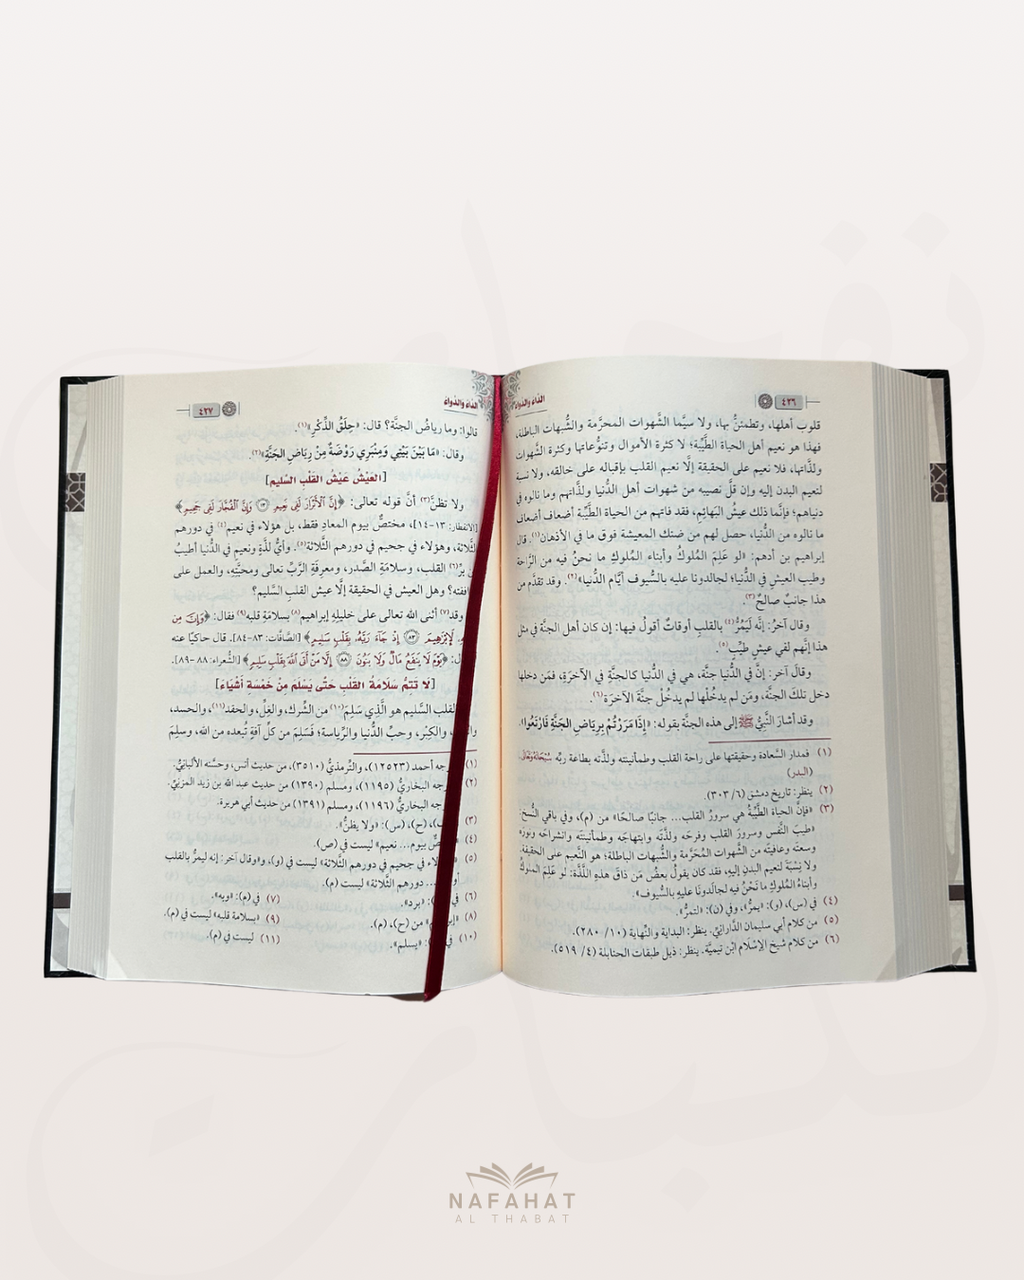 ٤٢٦
الداء والدواء
قلوبَ أهلها، وتطمئنُّ بها، ولا سيَّما الشَّهوات المحرَّمة والشُّبهات الباطلة،
فهذا هو نعيم أهل الحياة الطَّيِّبة؛ لا كثرة الأموال وتنوُّعاتها وكثرة الشَّهوات
ولذَّاتها، فلا نعيم على الحقيقة إلَّا نعيم القلب بإقباله على خالقه، ولا نسبة
لنعيم البدن إليه وإن قلَّ نصيبه من شهوات أهل الدُّنيا ولذَّاتهم وما نالوه في
دنياهم؛ فإنَّما ذلك عيشُ البَهائِم، فقد فاتهم من الحياة الطَّيِّبة أضعاف أضعاف
ما نالوه من الدُّنيا، حصل لهم من ضنك المعيشة فوق ما في الأذهان(١). قال
إبراهيم بن أدهم: «لو عَلِمَ المُلوكُ وأبناء المُلوكِ ما نحنُ فيه من الرَّاحة
وطيب العيشِ في الدُّنيا؛ لجالدونا عليه بالسُّيوف أيَّام الدُّنيا»(٢). وقد تقدَّم من
هذا جانبٌ صالحٌ(٣).
وقال آخرُ: إنَّه لَيَمُرُّ(٤) بالقلبِ أوقاتٌ أقولُ فيها: إن كان أهل الجنَّة في مثل
هذا إنَّهم لفي عيشٍ طيِّبٍ(٥).
وقالَ آخر: إنَّ في الدُّنيا جنَّة، هي في الدُّنيا كالجنَّة في الآخرَةِ، فمَن دخلها
دخل تلكَ الجنَّة، ومَن لم يدخُلْها لم يدخُلْ جنَّة الآخرَة(٦).
وقد أشارَ النَّبيُّ ﷺ إلى هذه الجنَّة بقوله: «إِذَا مَرَرْتُمْ بِرِيَاضِ الجَنَّةِ فَارْتَعُوا».
(١) فمدار السَّعادة وحقيقتها على راحة القلب وطمأنينته ولذَّته بطاعة ربِّه سُبْحَانَهُ وَتَعَالَى.
(البدر)
(٢) ينظر: تاريخ دمشق (٦/ ٣٠٣).
(٣) «فإنَّ الحياةَ الطَّيِّبةَ هي سرورُ القلب... جانبًا صالحًا» من (م)، وفي باقي النُّسخ:
«طيبَ النَّفس وسرورَ القلب وفرحَه ولذَّتَه وابتهاجَه وطمأنينتَه وانشراحَه ونورَه
وسعتَه وعافيتَه من الشَّهوات المُحَرَّمة والشُّبهات الباطلة؛ هو النَّعيم على الحقيقة،
ولا نِسْبَةَ لنعيم البدنِ إليه، فقد كان يقولُ بعضُ مَن ذاقَ هذهِ اللَّذَّةَ: لو عَلِمَ المُلوكُ
وأبناءُ المُلوكِ ما نَحْنُ فيه لجالدونا عليهِ بالسُّيوف».
(٤) في (س)، (و): «يمرُّ»، وفي (ن): «لتمرُّ».
(٥) من كلام أبي سليمان الدَّارانيِّ. ينظر: البداية والنِّهاية (١٠/ ٢٨٠).
(٦) من كلام شيخ الإسلام ابن تيميَّة. ينظر: ذيل طبقات الحنابلة (٤/ ٥١٩).
الداء والدواء
٤٢٧
قالوا: وما رياضُ الجنَّة؟ قال: «حِلَقُ الذِّكْرِ»(١).
وقال: «مَا بَيْنَ بَيْتِي وَمِنْبَرِي رَوْضَةٌ مِنْ رِيَاضِ الجَنَّةِ»(٢).
[العَيْشُ عَيْشُ القَلْبِ السَّلِيم]
ولا تظنَّ(٣) أنَّ قوله تعالى: ﴿إِنَّ ٱلْأَبْرَارَ لَفِى نَعِيمٍ ١٣ وَإِنَّ ٱلْفُجَّارَ لَفِى جَحِيمٍ﴾
[الانفطار: ١٣-١٤]، مختصٌّ بيوم المعادِ فقط، بل هؤلاء في نعيم(٤) في دورهم
الثَّلاثة، وهؤلاء في جحيم في دورهم الثَّلاثة(٥). وأيُّ لذَّةٍ ونعيم في الدُّنيا أطيبُ
برِّ(٦) القلب، وسلامَةِ الصَّدر، ومعرفَةِ الرَّبِّ تعالى ومحبَّتِه، والعمل على
افقته؟ وهل العيش في الحقيقة إلَّا عيش القلبِ السَّليم؟
وقد(٧) أثنى الله تعالى على خليلِهِ إبراهيم(٨) بسلامَةِ قلبه(٩) فقال: ﴿وَإِنَّ مِن
لَإِبْرَٰهِيمَ ٨٣ إِذْ جَآءَ رَبَّهُۥ بِقَلْبٍ سَلِيمٍ﴾ [الصَّافَّات: ٨٣-٨٤]. قال حاكيًا عنه
﴿يَوْمَ لَا يَنفَعُ مَالٌ وَلَا بَنُونَ ٨٨ إِلَّا مَنْ أَتَى ٱللَّهَ بِقَلْبٍ سَلِيمٍ﴾ [الشُّعراء: ٨٨-٨٩].
[لا تَتِمُّ سَلَامَةُ القَلْبِ حَتَّى يَسْلَمَ مِنْ خَمْسَةِ أَشْيَاءَ]
القلب السَّليم هو الَّذي سَلِمَ(١٠) من الشِّرك، والغِلِّ، والحقد(١١)، والحسد،
والكِبْر، وحبِّ الدُّنيا والرِّياسة؛ فسَلِمَ من كلِّ آفةٍ تُبعده من الله، وسلِمَ
(١) جه أحمد (١٢٥٢٣)، والتِّرمذيُّ (٣٥١٠)، من حديث أنسٍ، وحسَّنه الألبانيُّ.
(٢) جه البخاريُّ (١١٩٥)، ومسلم (١٣٩٠) من حديث عبد الله بن زيد المزنيِّ.
جه البخاريُّ (١١٩٦)، ومسلم (١٣٩١) من حديث أبي هريرة.
(٣) (ح)، (س): «ولا يظنُّ».
(٤) بيوم... نعيم» ليست في (ص).
(٥) لاء في جحيم في دورهم الثَّلاثة» ليست في (و)، و«وقال آخر: إنه ليمرُّ بالقلب
... دورهم الثَّلاثة» ليست في (م).
(٦) في : «برد». (٧) في (م): «وبه».
(٨) من (ح)، (م). (٩) «بسلامة قلبه» ليست في (م).
(١٠) في : «يسلم». (١١) ليست في (م).
NAFAHAT
AL THABAT